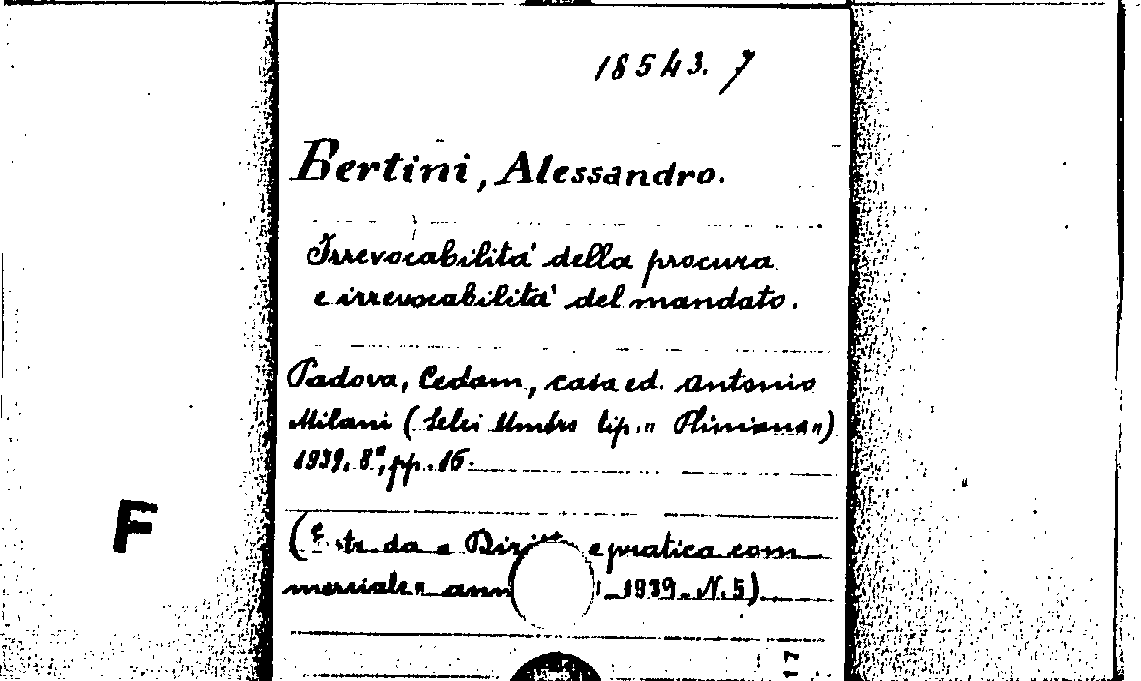 18543. 7
Bertini, Alessandro.
Irrevocabilità della procura
e irrevocabilità del mandato.
Padova, Cedam, casa ed. Antonio
Milani (Selci Umbro tip. " Pliniana")
1939, 8°, pp. 16.
F
( Estr. da " Diritto e pratica com
merciale" ann 1939. N. 5).
17